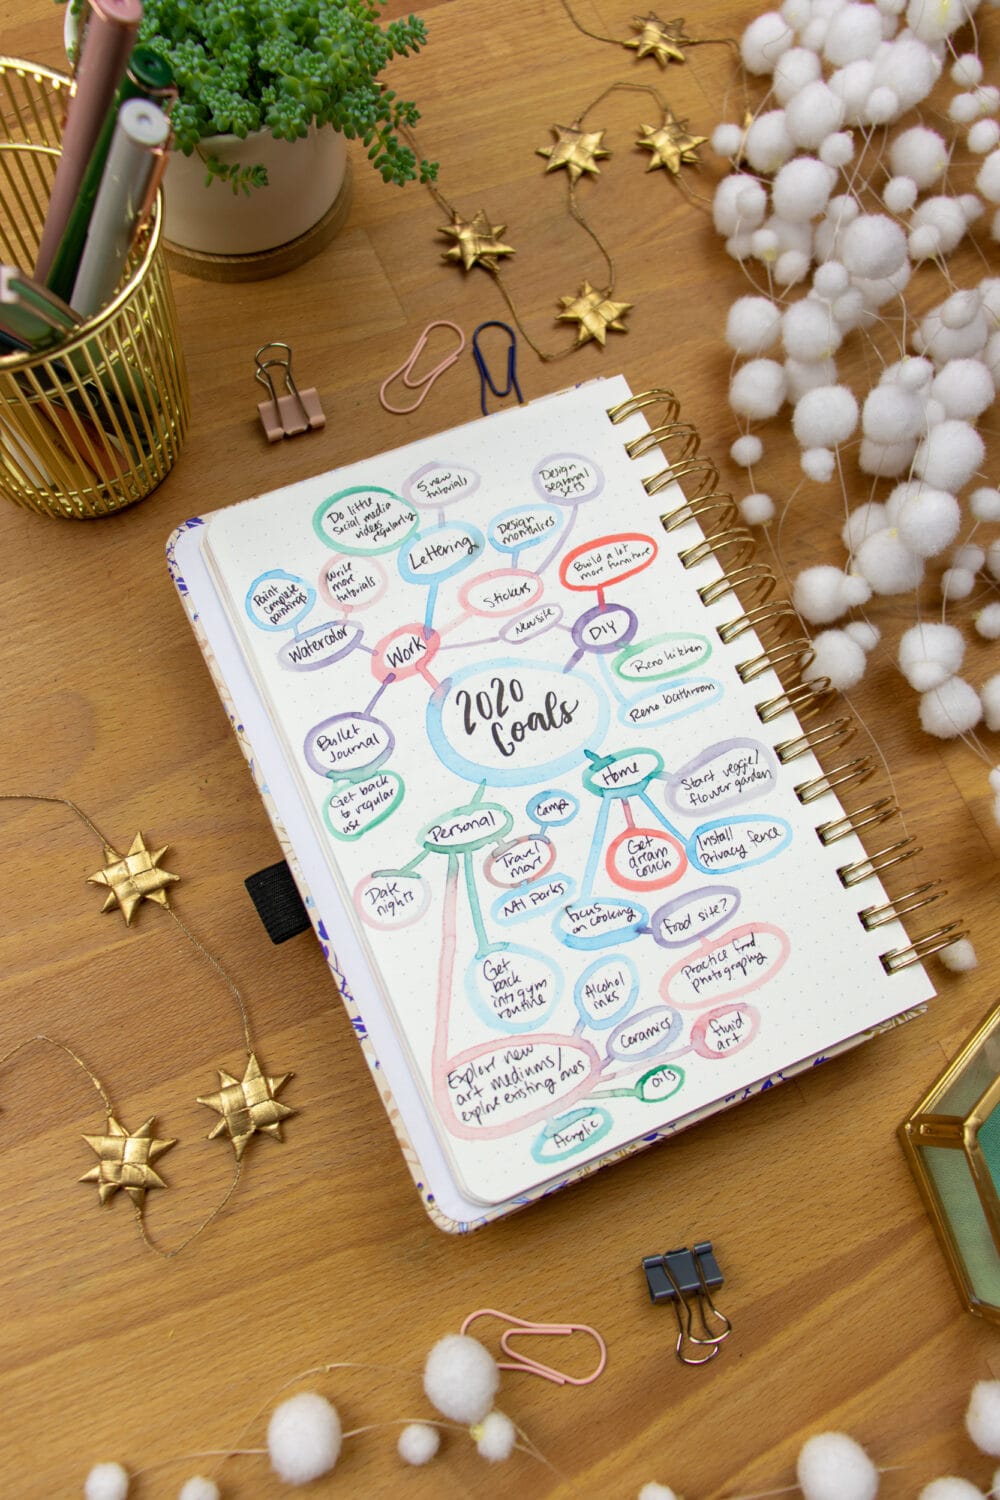 Do little
social media
videos
regularly
5 new
tutorials
Design
seasonal
sets
Lettering
Design
monthlies
Build a lot
more furniture
Paint
complete
paintings
Write
more
tutorials
Stickers
Watercolor
Work
New site
DIY
Reno kitchen
Reno bathroom
2020
Goals
Bullet
Journal
Get back
to regular
use
Home
Start veggie/
flower garden
Personal
Camp
Travel
more
Get
dream
couch
Install
Privacy fence
Date
nights
Ntl Parks
Focus
on cooking
food site?
Practice food
photography
Get
back
into gym
routine
Alcohol
inks
Ceramics
fluid
art
Explore new
art mediums/
explore existing ones
oils
Acrylic